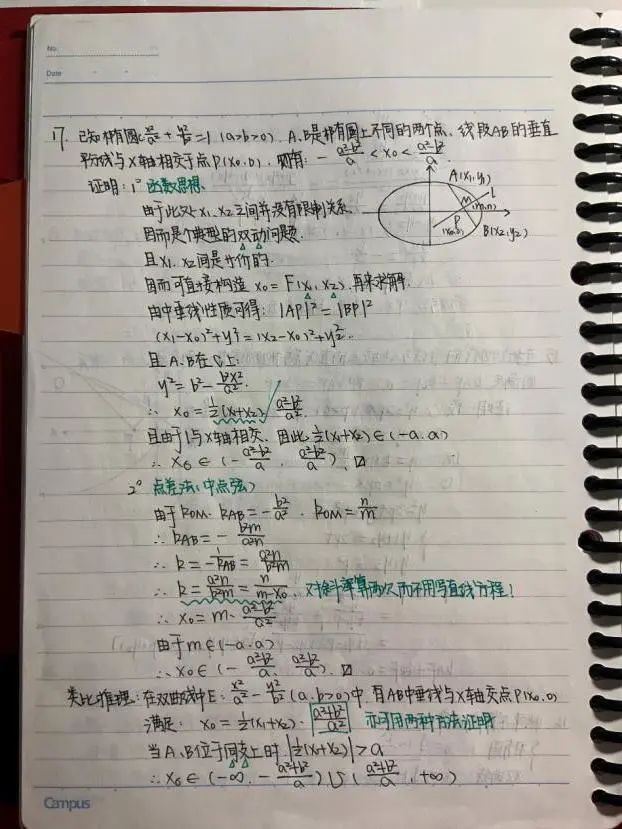 No.
Date
17. 已知椭圆C x²/a² + y²/b² = 1 (a>b>0). A.B是椭圆上不同的两个点. 线段AB的垂直
平分线与X轴相交于点P(x₀,0). 则有: - (a²-b²)/a < x₀ < (a²-b²)/a.
A(x₁,y₁)
l
M
(m,n)
P
(x₀,0)
B(x₂,y₂)
证明: 1° 函数思想.
由于此处x₁,x₂之间并没有限制关系.
因而是个典型的双动问题.
且x₁.x₂间是等价的.
因而可直接构造 x₀ = F(x₁,x₂). 再来求解.
由中垂线性质可得: |AP|² = |BP|²
(x₁-x₀)²+y₁² = (x₂-x₀)²+y₂².
且A.B在C上.
y² = b² - b²x²/a².
∴ x₀ = ½(x₁+x₂)·(a²-b²)/a².
且由于l与X轴相交. 因此½(x₁+x₂)∈(-a.a)
∴ x₀ ∈ (-(a²-b²)/a. (a²-b²)/a).
2° 点差法(中点弦)
由于kOM·kAB = -b²/a². kOM = n/m
∴ kAB = - b²m/a²n
∴ k = -1/kAB = a²n/b²m
∴ k = a²n/b²m = n/(m-x₀). 对斜率算两次而不用写直线方程!
∴ x₀ = m·(a²-b²)/a²
由于m∈(-a.a)
∴ x₀∈(-(a²-b²)/a. (a²-b²)/a).
类比推理: 在双曲线中E: x²/a² - y²/b² (a.b>0)中. 有AB中垂线与X轴交点P(x₀,0)
满足: x₀ = ½(x₁+x₂)·(a²+b²)/a² 亦可用两种方法证明
当A.B位于同支上时 |½(x₁+x₂)| > a
∴ x₀ ∈ (-∞. -(a²+b²)/a) ∪ ((a²+b²)/a. +∞)
Campus